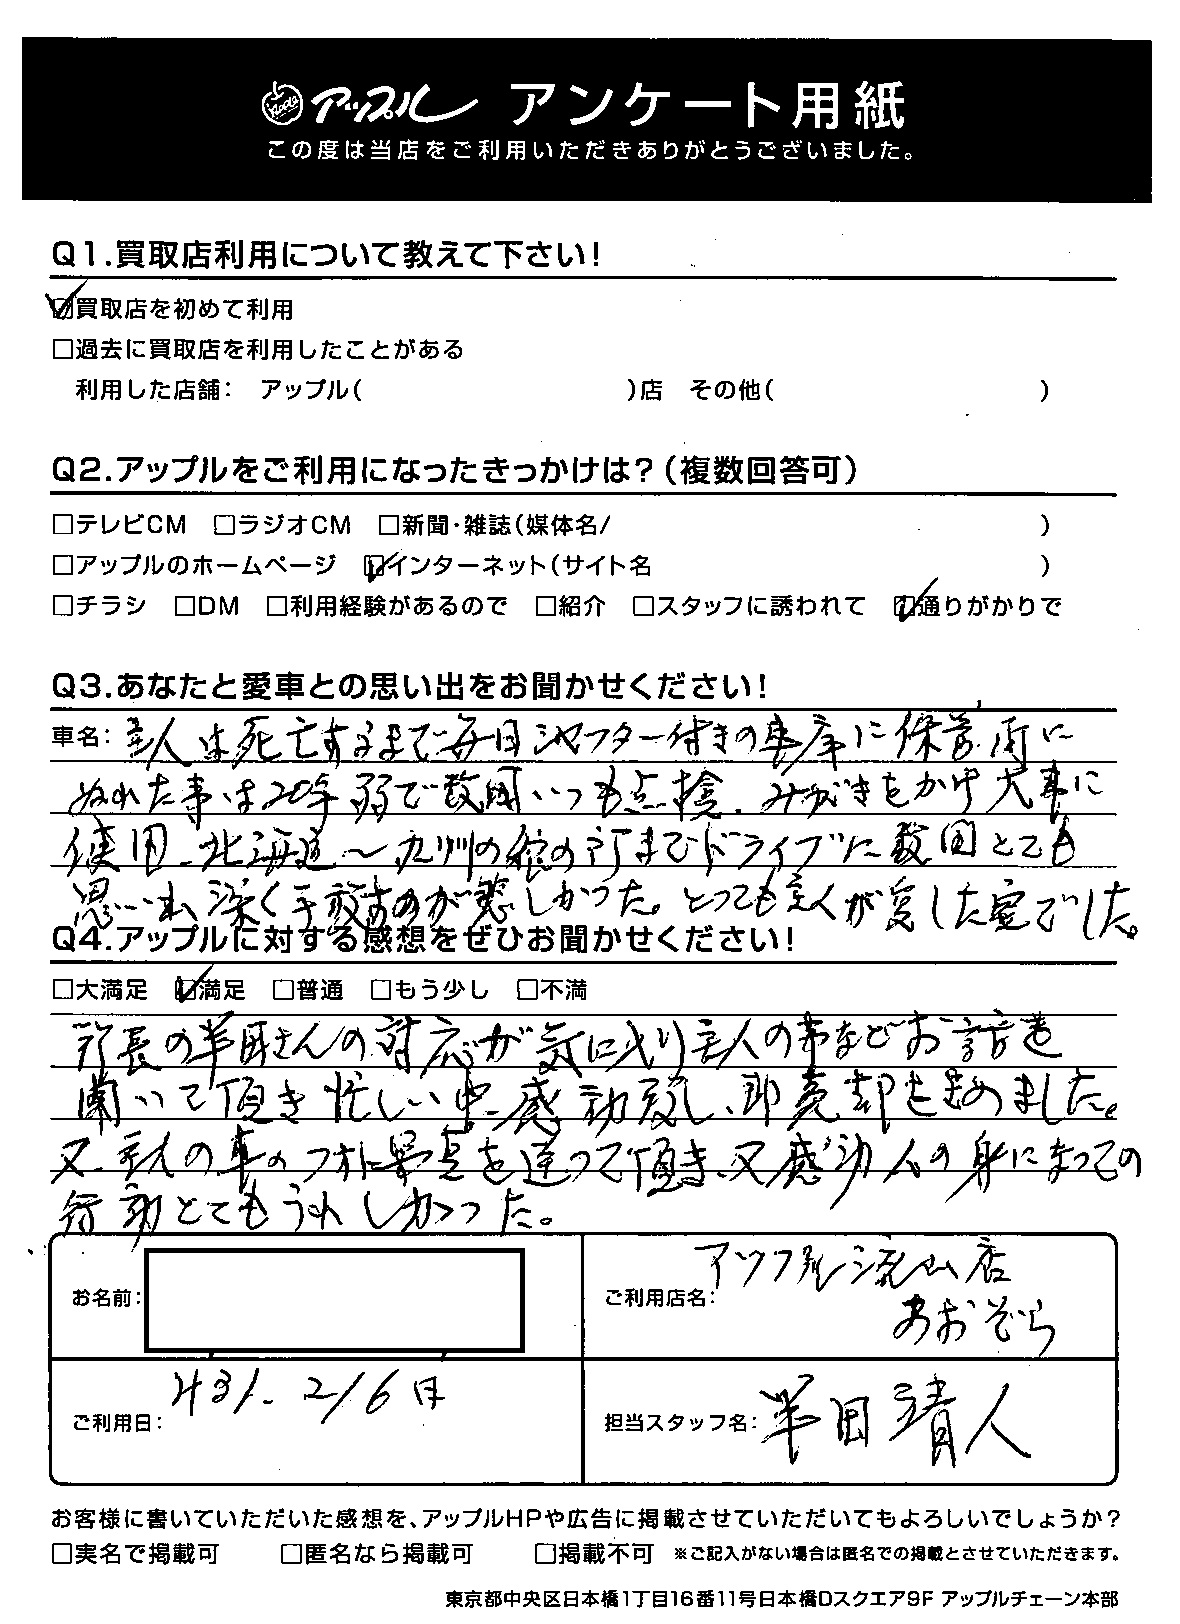 アップル アンケート用紙
この度は当店をご利用いただきありがとうございました。
Q1.買取店利用について教えて下さい!
☑買取店を初めて利用
□過去に買取店を利用したことがある
利用した店舗: アップル( )店 その他( )
Q2.アップルをご利用になったきっかけは?(複数回答可)
□テレビCM □ラジオCM □新聞・雑誌(媒体名/ )
□アップルのホームページ ☑インターネット(サイト名 )
□チラシ □DM □利用経験があるので □紹介 □スタッフに誘われて ☑通りがかりで
Q3.あなたと愛車との思い出をお聞かせください!
車名: 主人は死亡するまで毎日シャフター付きの車庫に保管、雨に
ぬれた事は20年弱で数回いつも点検、みがきをかけ大事に
使用、北海道〜九州の娘の所までドライブに数回とても
思い入れ深く手放すのが悲しかった。とっても主人が愛した宝でした。
Q4.アップルに対する感想をぜひお聞かせください!
□大満足 ☑満足 □普通 □もう少し □不満
所長の半田さんの対応が気に入り主人の事などお話を
聞いて頂き忙しい中、感動致し、即売却を決めました。
又、主人の車のフォト写真を送って頂き、又感動人の身になっての
行動とてもうれしかった。
お名前:
ご利用店名: アップル流山店
あおぞら
ご利用日: H31. 2/6日
担当スタッフ名: 半田靖人
お客様に書いていただいた感想を、アップルHPや広告に掲載させていただいてもよろしいでしょうか?
□実名で掲載可 □匿名なら掲載可 □掲載不可 ※ご記入がない場合は匿名での掲載とさせていただきます。
東京都中央区日本橋1丁目16番11号日本橋Dスクエア9F アップルチェーン本部